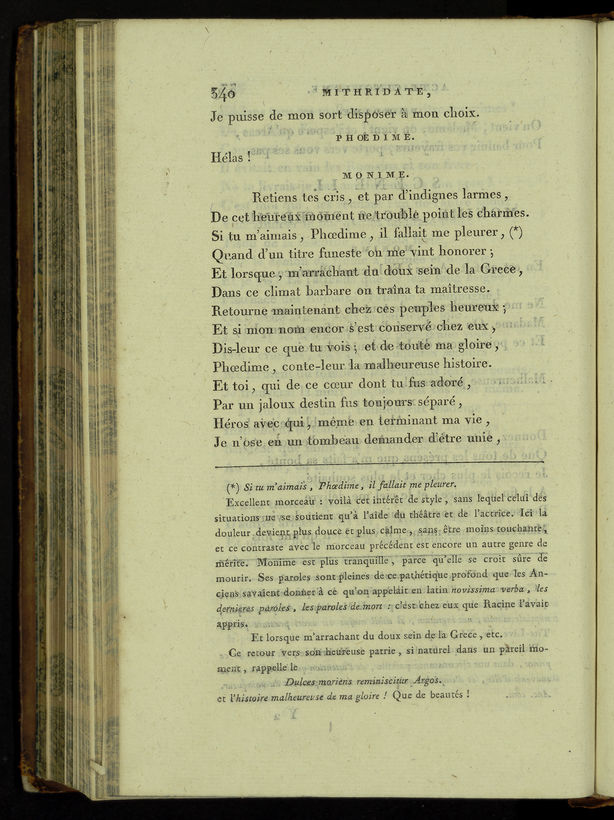 340 MITHRIDATE,
Je puisse de mon sort disposer à mon choix.
PHŒDIME.
Hélas !
MONIME.
Retiens tes cris, et par d'indignes larmes,
De cet heureux moment ne trouble point les charmes.
Si tu m'aimais, Phœdime, il fallait me pleurer, (*)
Quand d'un titre funeste on me vint honorer ;
Et lorsque, m'arrachant du doux sein de la Grece,
Dans ce climat barbare on traîna ta maîtresse.
Retourne maintenant chez ces peuples heureux ;
Et si mon nom encor s'est conservé chez eux,
Dis-leur ce que tu vois ; et de toute ma gloire,
Phœdime, conte-leur la malheureuse histoire.
Et toi, qui de ce cœur dont tu fus adoré,
Par un jaloux destin fus toujours séparé,
Héros avec qui, même en terminant ma vie,
Je n'ose en un tombeau demander d'être unie,
(*) Si tu m'aimais, Phœdime, il fallait me pleurer.
Excellent morceau : voilà cet intérêt de style, sans lequel celui des
situations ne se soutient qu'à l'aide du théâtre et de l'actrice. Ici la
douleur devient plus douce et plus calme, sans être moins touchante,
et ce contraste avec le morceau précédent est encore un autre genre de
mérite. Monime est plus tranquille, parce qu'elle se croit sûre de
mourir. Ses paroles sont pleines de ce pathétique profond que les An-
ciens savaient donner à ce qu'on appelait en latin novissima verba, les
dernieres paroles, les paroles de mort : c'est chez eux que Racine l'avait
appris.
Et lorsque m'arrachant du doux sein de la Grece, etc.
Ce retour vers son heureuse patrie, si naturel dans un pareil mo-
ment, rappelle le
Dulces moriens reminiscitur Argos.
et l'histoire malheureuse de ma gloire ! Que de beautés !